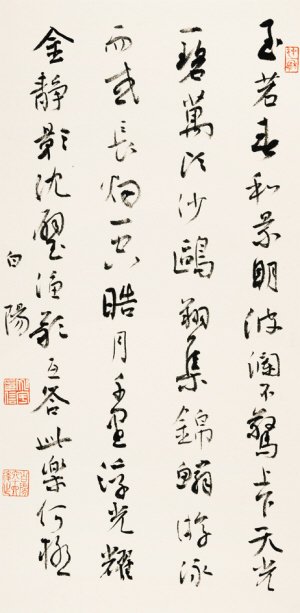 至若春和景明波瀾不驚上下天光
一碧萬頃沙鷗翔集錦鱗游泳
而或長烟一空皓月千里浮光耀
金靜影沈璧漁歌互答此樂何極
白陽